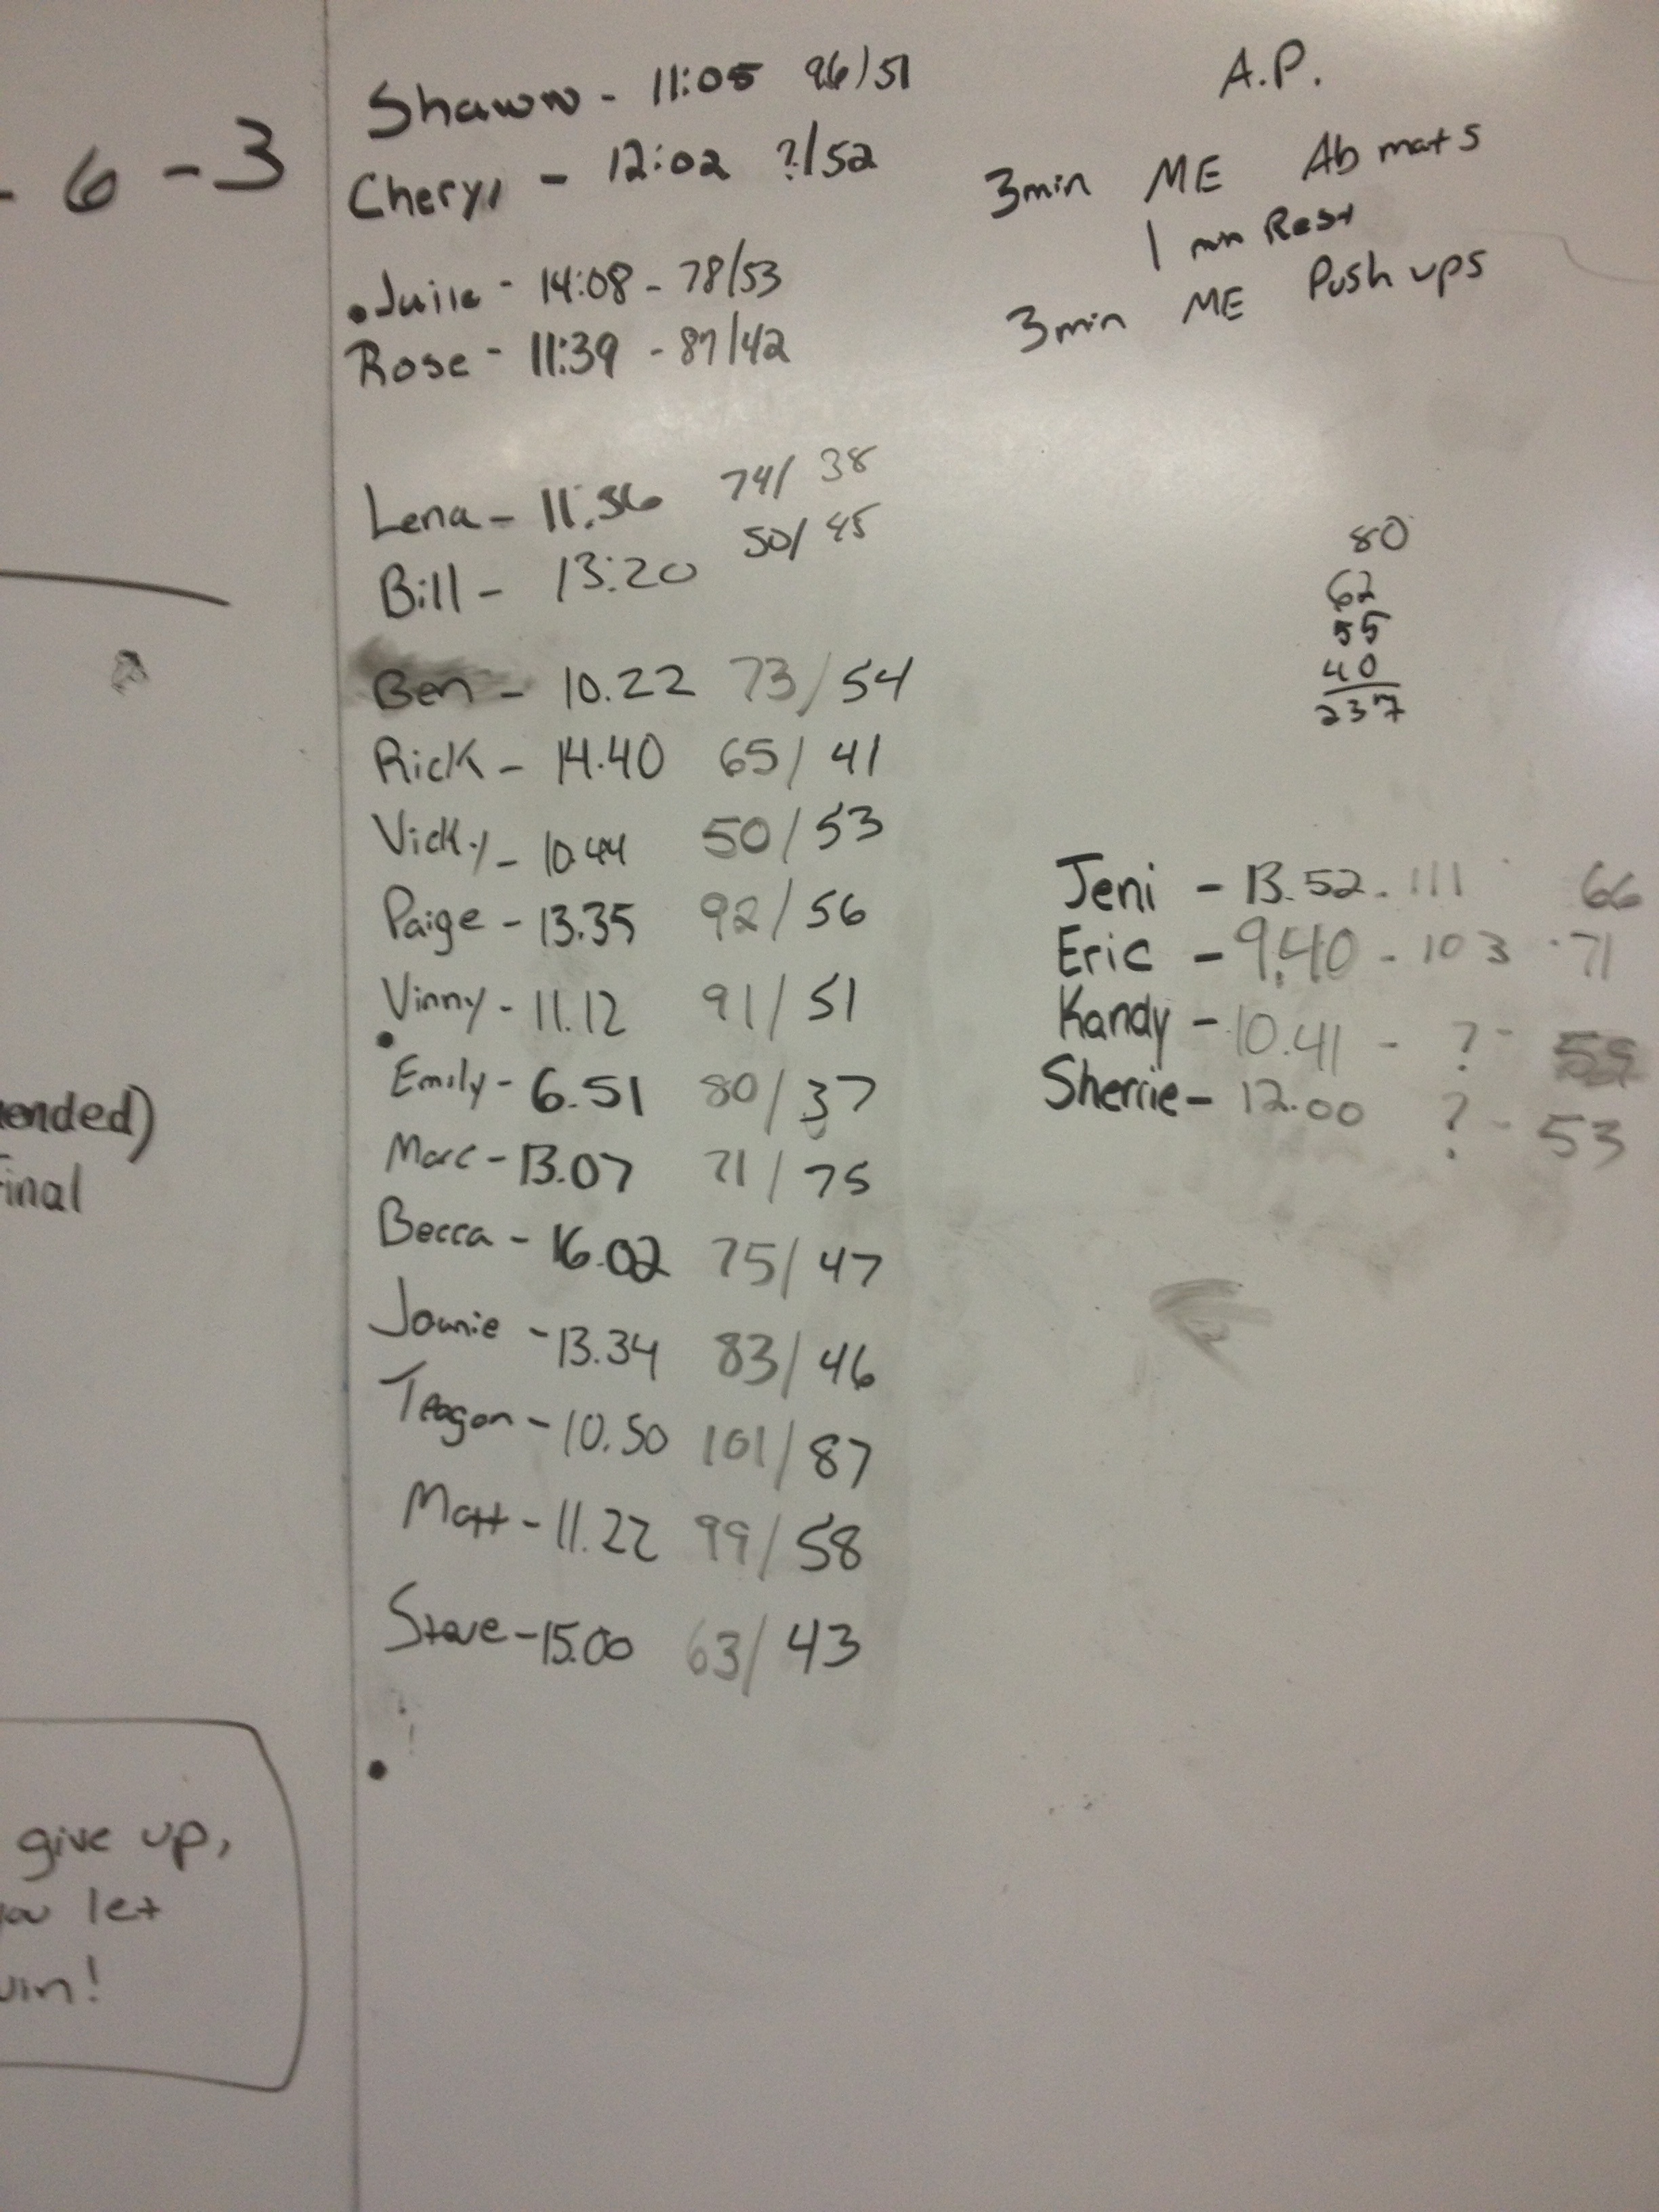 - 6 - 3
Shawn - 11:05 96/51
Cheryl - 12:02 ?/52
14:08 - 78/53
Rose - 11:39 - 87/42
Lena - 11:56 74/38
Bill - 13:20 50/45
Ben - 10.22 73/54
Rick - 14.40 65/41
Vicky - 10.44 50/53
Paige - 13.35 92/56
Vinny - 11.12 91/51
Emily - 6.51 80/37
Marc - 13.07 71/75
Becca - 16.02 75/47
Jamie - 13.34 83/46
Teagan - 10.50 101/87
Matt - 11.22 99/58
Steve - 15.00 63/43
A.P.
3min ME Ab mats
1 min Rest
3min ME Push ups
80
62
55
40
237
Jeni - 13.52 - 111 66
Eric - 9.40 - 103 71
Kandy - 10.41 - ? -
Sherrie - 12.00 ? - 53
ended)
Final
give up,
you let
win!